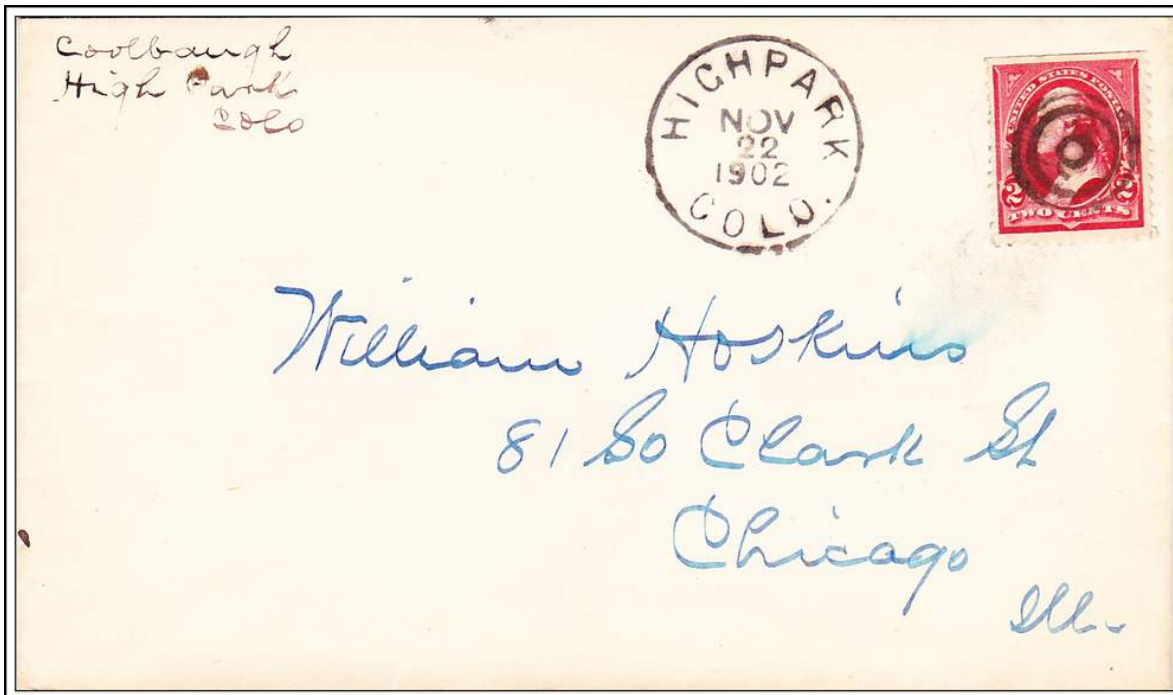 Coolbaugh
High Park
Colo
HIGHPARK
NOV
22
1902
COLO.
UNITED STATES POSTAGE
2 2
TWO CENTS
William Hoskins
81 So Clark St
Chicago
Ill.